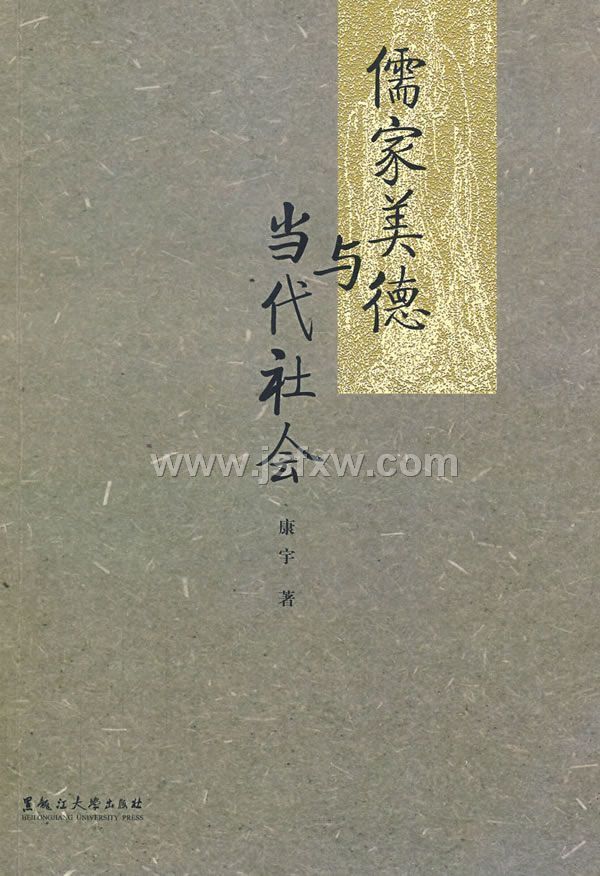 儒家美德
与
当代社会
康宇 著
www.jsfxw.com
黑龙江大学出版社
HEILONGJIANG UNIVERSITY PRESS